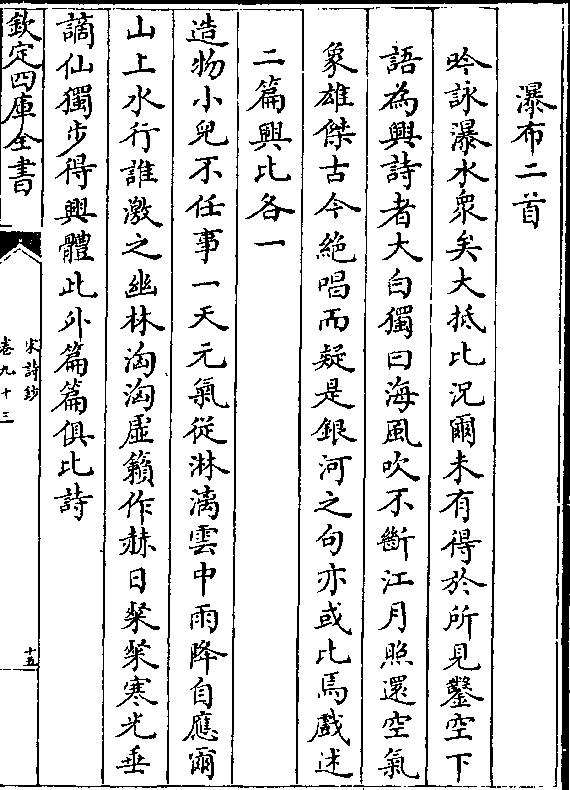 瀑布二首
吟詠瀑水衆矣大抵比況爾未有得於所見鑿空下
語為興詩者大白獨曰海風吹不斷江月照還空氣
象雄傑古今絶唱而疑是銀河之句亦或比焉戲述
二篇興比各一
造物小兒不任事一天元氣從淋漓雲中雨降自應爾
山上水行誰激之幽林洶洶虛籟作赫日粲粲寒光垂
謫仙獨步得興體此外篇篇俱比詩
欽定四庫全書
宋詩鈔
卷九十三
十五